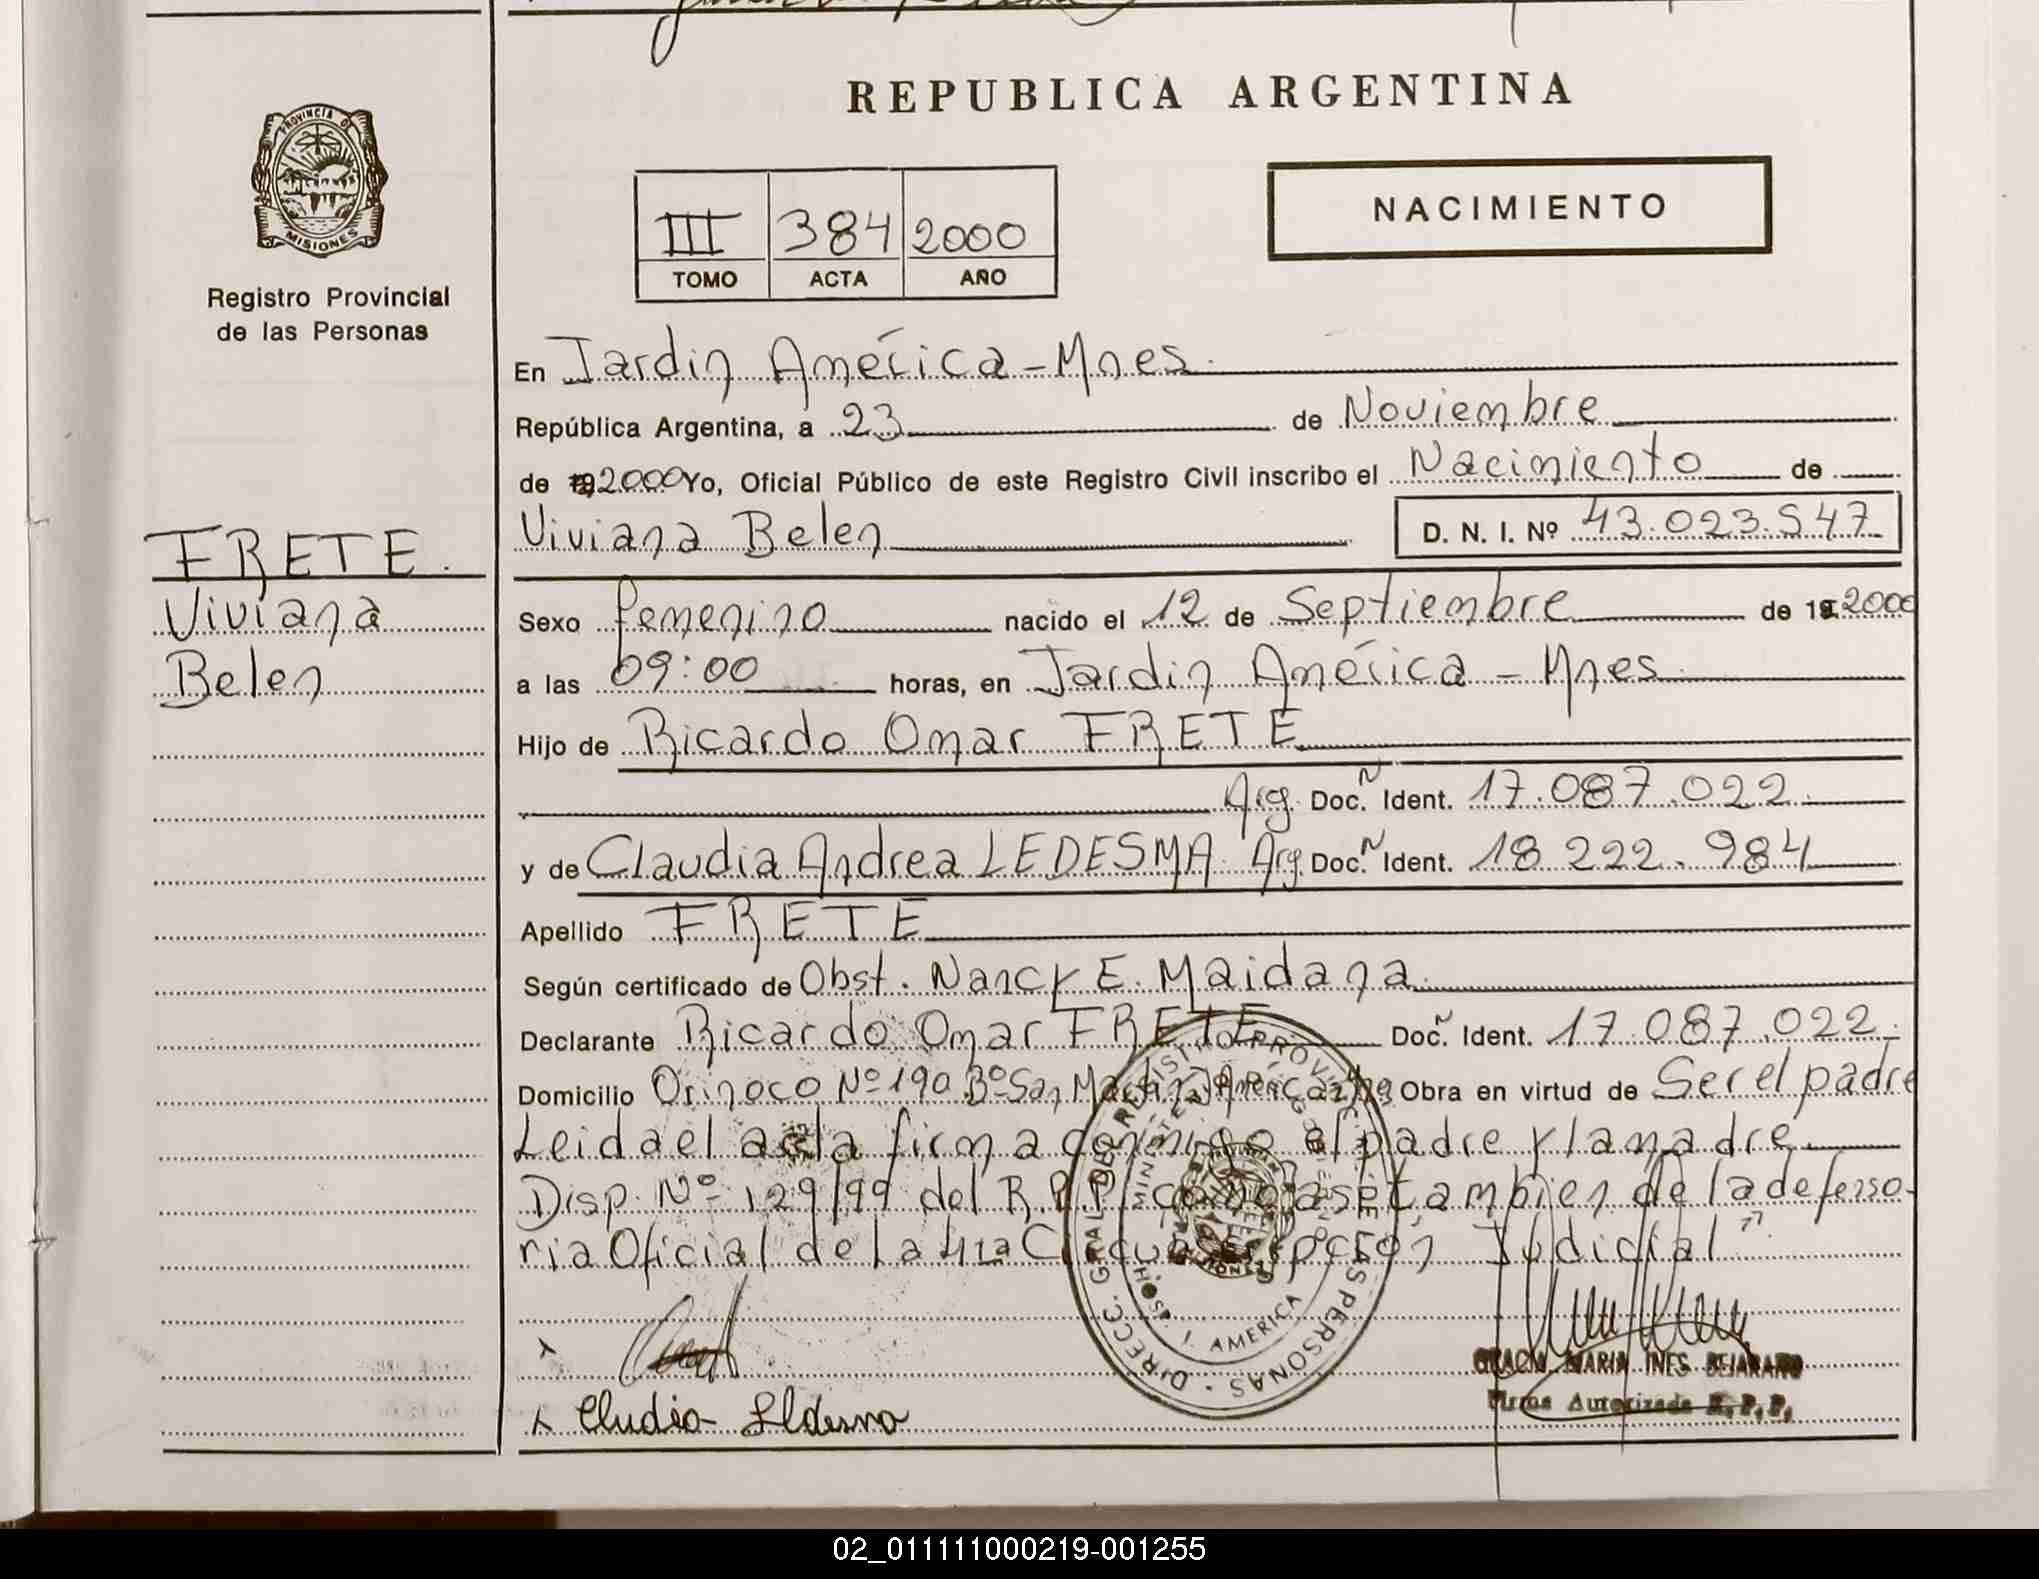 REPUBLICA ARGENTINA
PROVINCIA DE
MISIONES
Registro Provincial
de las Personas
III 384 2000
TOMO ACTA AÑO
NACIMIENTO
En Jardin América - Mnes.
República Argentina, a 23 de Noviembre
de 19 2000 Yo, Oficial Público de este Registro Civil inscribo el Nacimiento de
Viviana Belen D. N. I. Nº 43.023.547
FRETE.
Viviana
Belen
Sexo femenino nacido el 12 de Septiembre de 19 2000
a las 09:00 horas, en Jardin América - Mnes
Hijo de Ricardo Omar FRETE
Arg. Doc. N Ident. 17.087.022
y de Claudia Andrea LEDESMA Arg. Doc. N Ident. 18 222.984
Apellido FRETE
Según certificado de Obst. Nancy E. Maidana
Declarante Ricardo Omar FRETE Doc. N Ident. 17.087.022
Domicilio Orinoco Nº 190 Bº San Martin J. América Mnes Obra en virtud de Ser el padre
Leida el acta firma conmigo el padre y la madre
Disp. Nº 129/99 del R.P.P. como asi tambien de la defenso-
ria Oficial de la 4ta Circunscripción Judicial"
Cludia Lldesma
DIRECC. GRAL. DEL REGISTRO PROVINCIAL DE LAS PERSONAS
J. AMERICA
GRACIA MARIA INES BEJARANO
Firma Autorizada R.P.P.
02_011111000219-001255